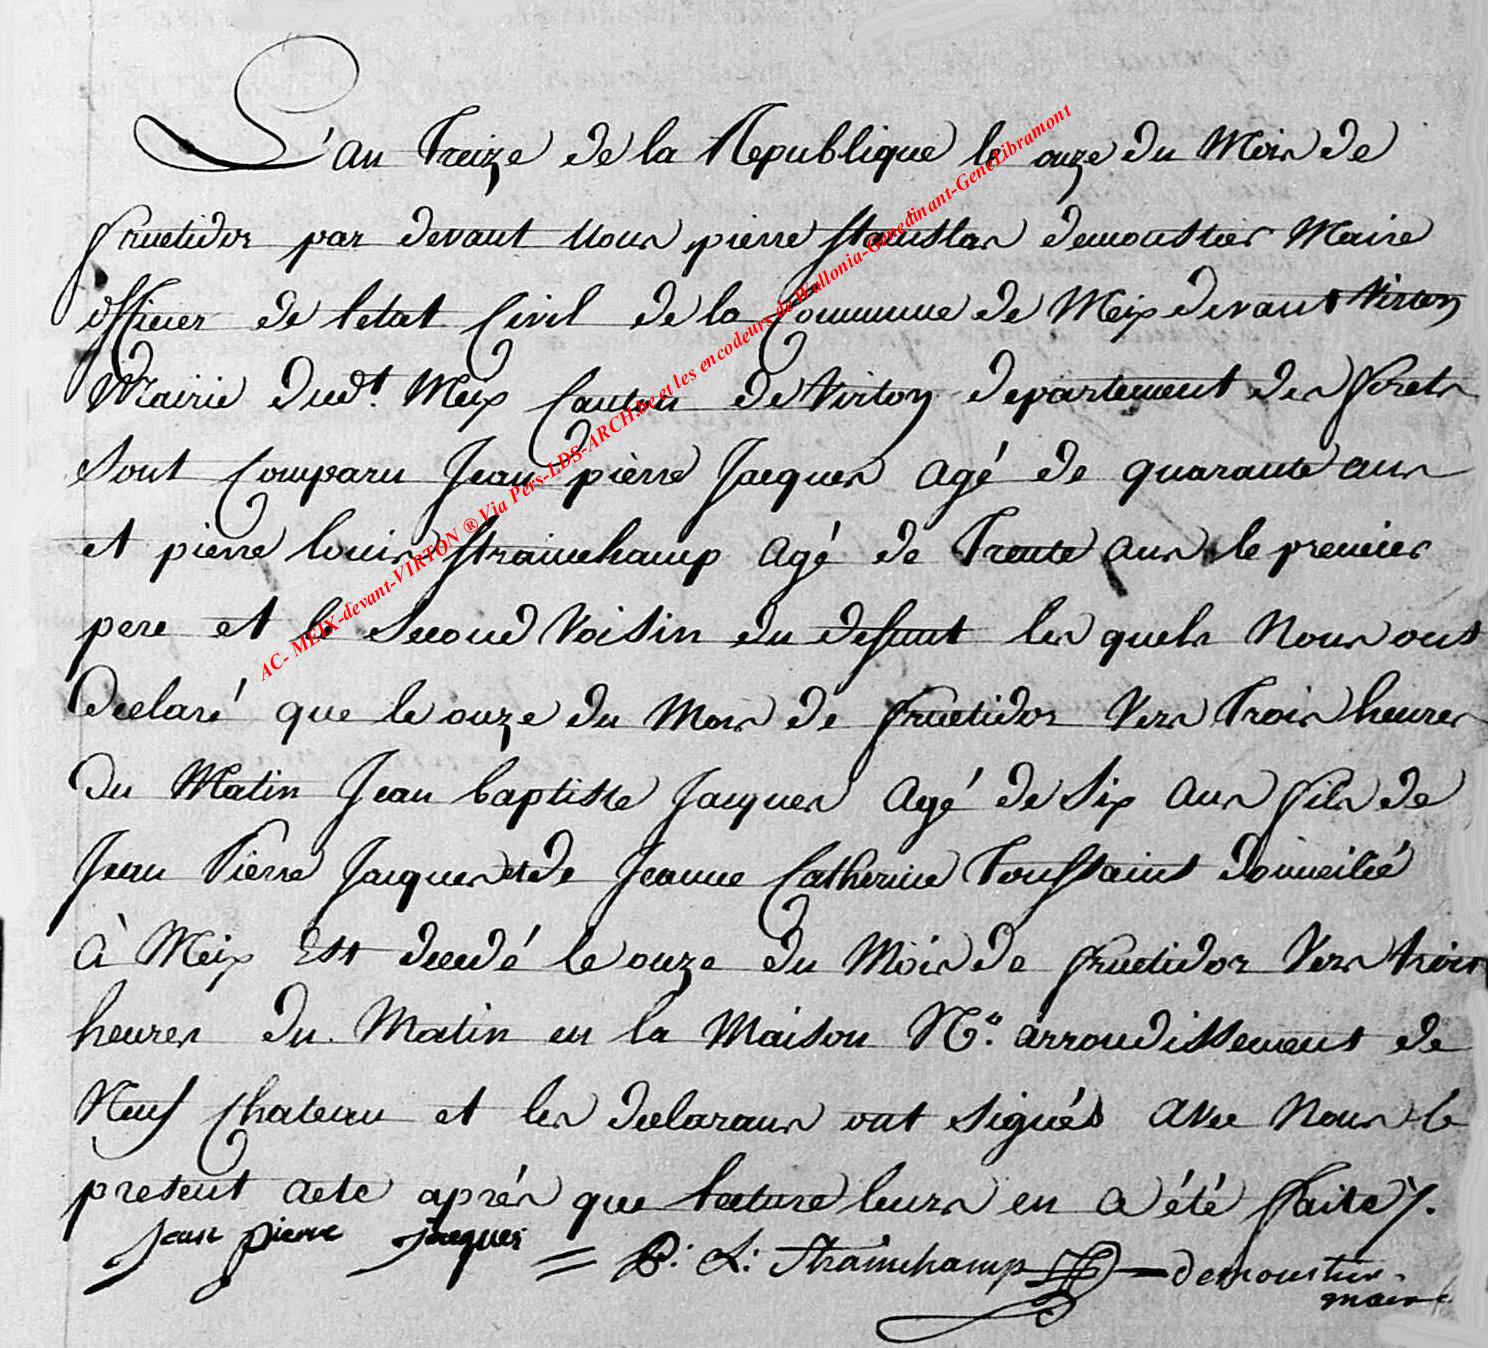 L'an treize de la Republique le onze du Mois de
fructidor par devant nous pierre stanislas demoustier Maire
officier de letat Civil de la Commune de Meix devant Virton
Mairie dud.t Meix Canton de Virton departement des forets
sont Comparu Jean pierre Jacques agé de quarante ans
et pierre louis strainchamp agé de Trente ans le premier
pere et le second Voisin du defunt les quels Nous ont
declaré que le onze du Mois de fructidor Vers trois heures
du Matin Jean baptiste Jacques agé de Six ans fils de
Jean Pierre Jacques et de Jeanne Catherine Toussaint domicilié
à Meix Est decedé le onze du Mois de fructidor Vers trois
heures du Matin en la Maison N.o arrondissement de
Neuf Chateau et les declarans ont signés avec Nous le
present acte aprés que lecture leurs en a été faite
Jean pierre Jacques = P: L: Strainchamp demoustier
maire
AC- MEIX-devant-VIRTON ® Via Pers-LDS-ARCH.be et les encodeurs de Wallonia-Genedinant-GeneLibramont